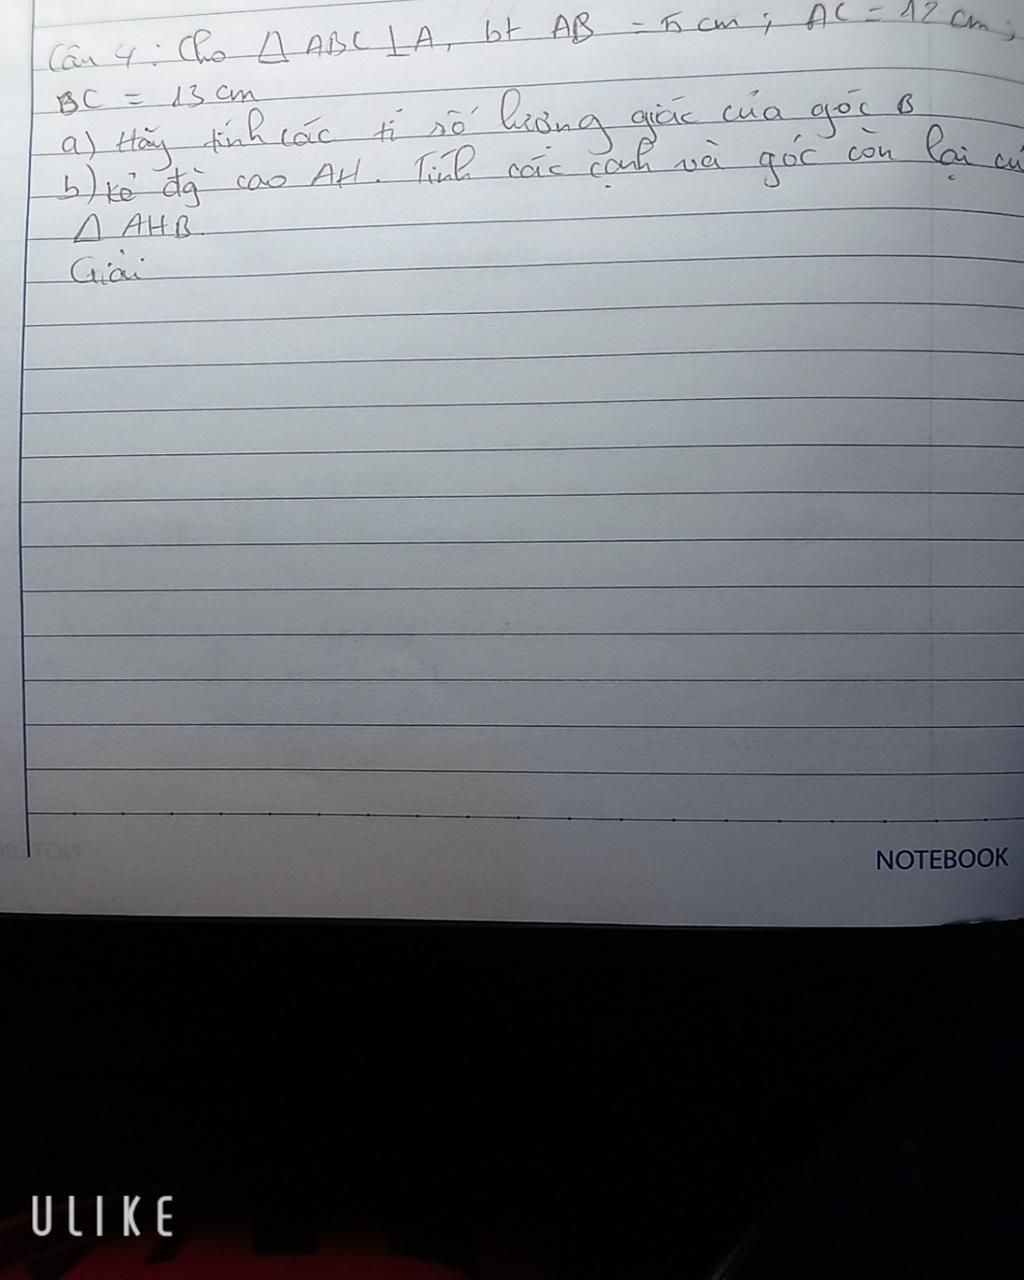 Câu 4: Cho Δ ABC ⊥ A, bt AB = 5 cm; AC = 12 cm;
BC = 13 cm
a) Hãy tính các tỉ số lượng giác của góc B
b) kẻ đg cao AH. Tính các cạnh và góc còn lại củ
Δ AHB.
Giải
NOTEBOOK
ULIKE